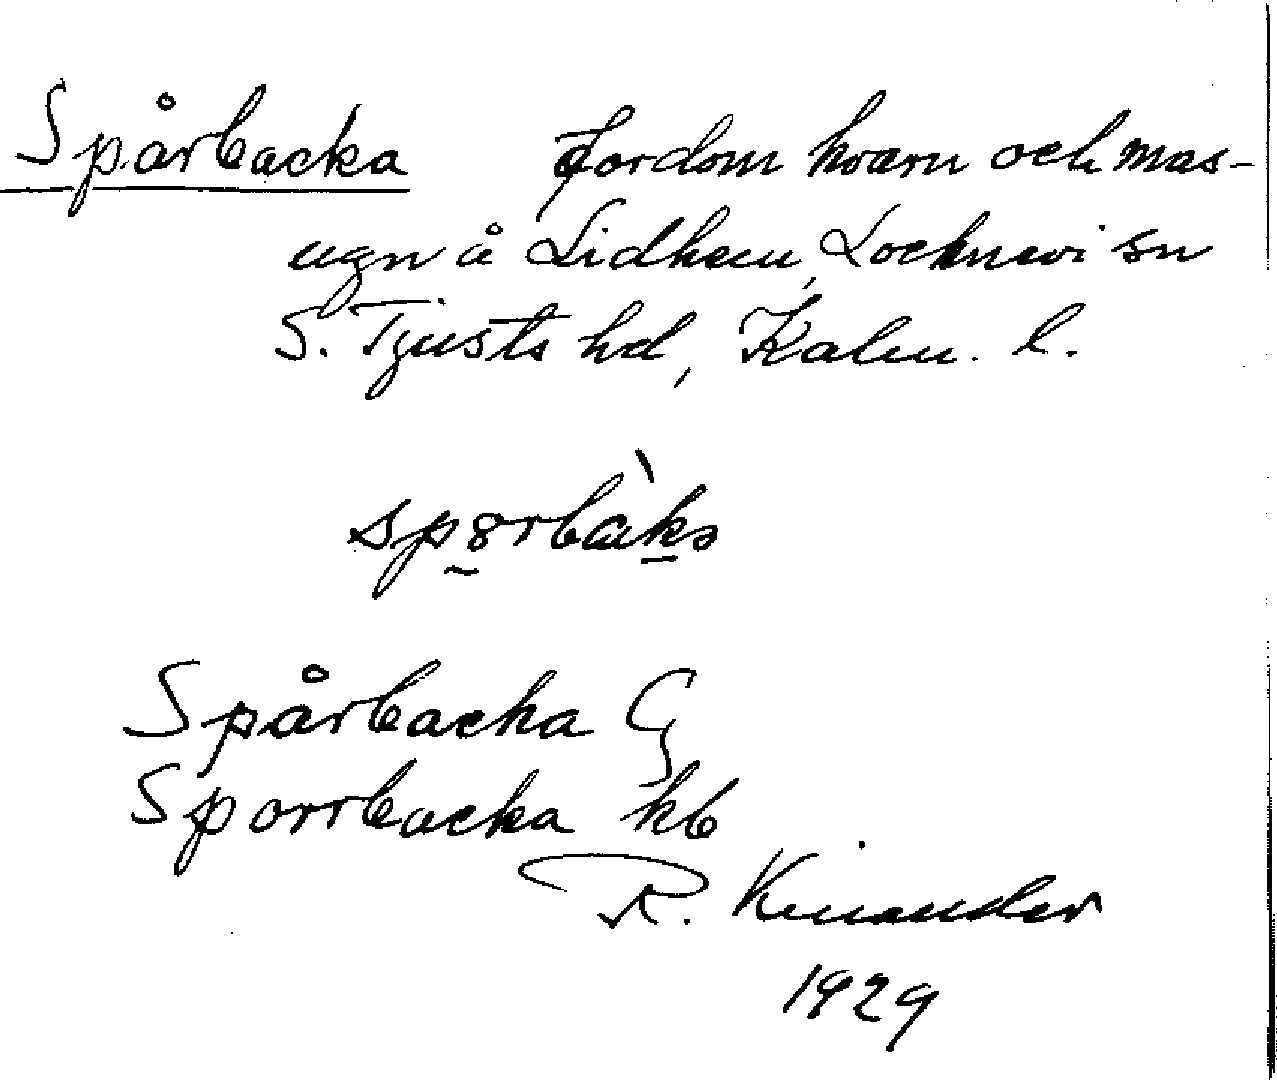 Spårbacka fordom kvarn och mas-
ugn å Lidhem, Locknevi sn
S. Tjusts hd, Kalm. l.
Spårbacka G
Sporrbacka kb
R. Kinander
1929